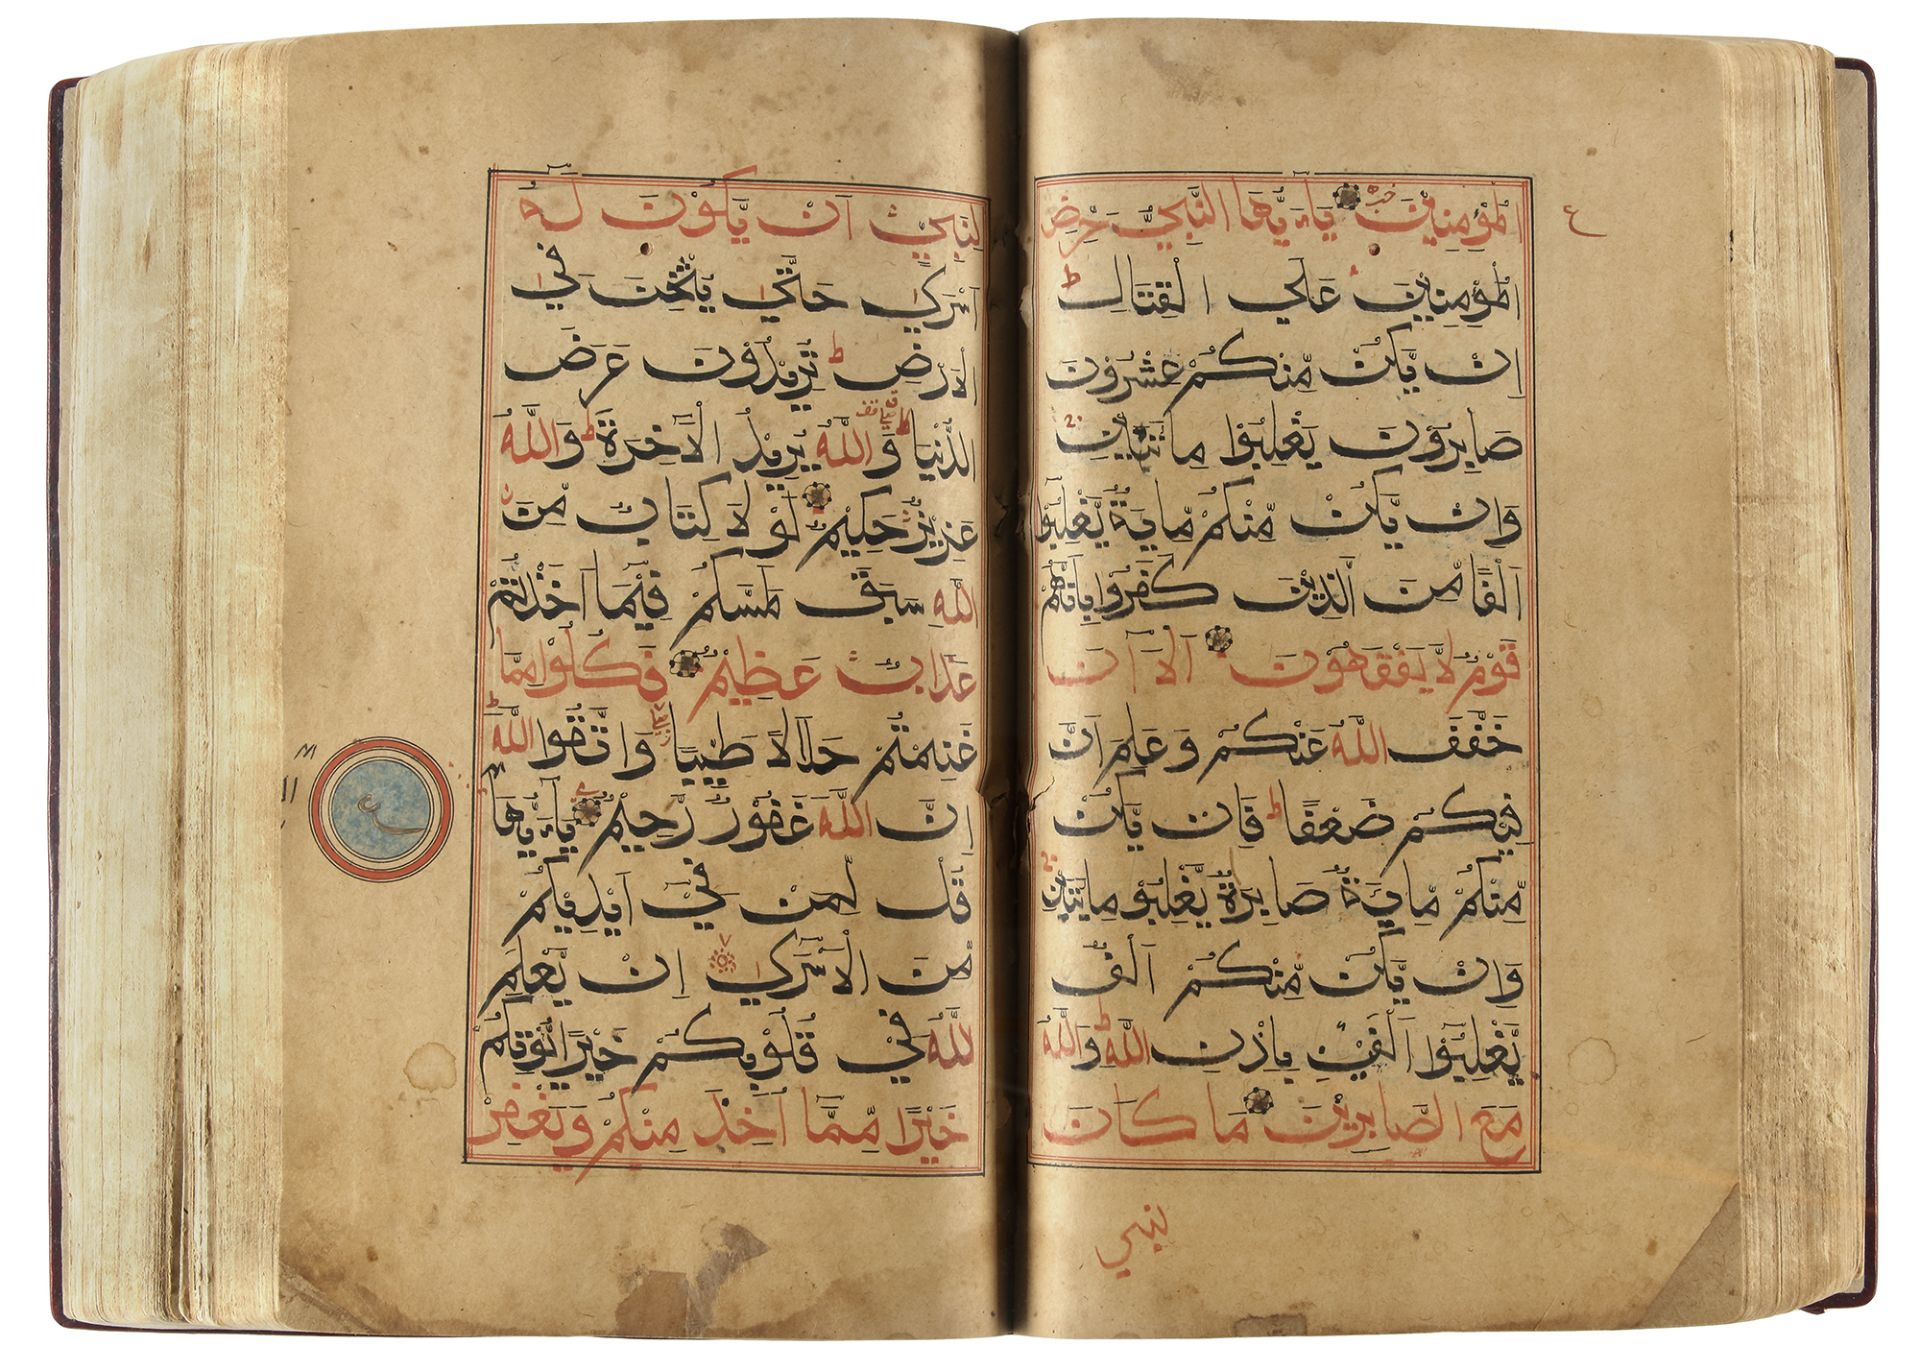 المُؤمِنِينَ يَاَيُّهَا النَّبِيُّ حَرِّضِ
المُؤمِنِينَ عَلَي القِتَالِ ط
اِنْ يَّكُنْ مِّنكُمْ عِشرُونَ
صَابِرُونَ يَغْلِبُوا مِائَتَيْنِ
وَاِنْ يَّكُنْ مِّنكُمْ مِايَةٌ يَّغْلِبُوا
اَلْفًا مِّنَ الَّذِينَ كَفَرُوا بِاَنَّهُمْ
قَوْمٌ لَا يَفْقَهُونَ اَلاٰنَ
خَفَّفَ اللهُ عَنْكُمْ وَعَلِمَ اَنَّ
فِيكُمْ ضَعْفًا ط فَاِن يَّكُنْ
مِّنكُمْ مِايَةٌ صَابِرَةٌ يَّغْلِبُوا مِايَتَيْنِ
وَاِنْ يَّكُنْ مِّنْكُمْ اَلْفٌ
يَّغْلِبُوا اَلْفَيْنِ بِاِذْنِ اللهِ ط وَاللهُ
مَعَ الصَّابِرِينَ مَا كَانَ
لِنَبِيٍّ اَنْ يَّكُونَ لَهُ
اَسْرَي حَتَّي يُثْخِنَ فِي
الاَرْضِ ط تُرِيدُونَ عَرَضَ
الدُّنْيَا وَاللهُ يُرِيدُ الْاٰخِرَةَ ط وَاللهُ
عَزِيزٌ حَكِيمٌ لَوْلَا كِتَابٌ مِّنَ
اللهِ سَبَقَ لَمَسَّكُمْ فِيْمَا اَخَذْتُمْ
عَذَابٌ عَظِيْمٌ فَكُلُوا مِمَّا
غَنِمْتُمْ حَلَالًا طَيِّبًا وَاتَّقُوا اللهَ ط
اِنَّ اللهَ غَفُورٌ رَّحِيمٌ يَاَيُّهَا
قُل لِّمَنْ فِيْ اَيْدِيْكُمْ
مِّنَ الْاَسْرَي اِنْ يَّعْلَمِ
اللهُ فِيْ قُلُوبِكُمْ خَيْرًا يُّؤْتِكُمْ
خَيْرًا مِّمَّا اُخِذَ مِنْكُمْ وَيَغْفِرْ